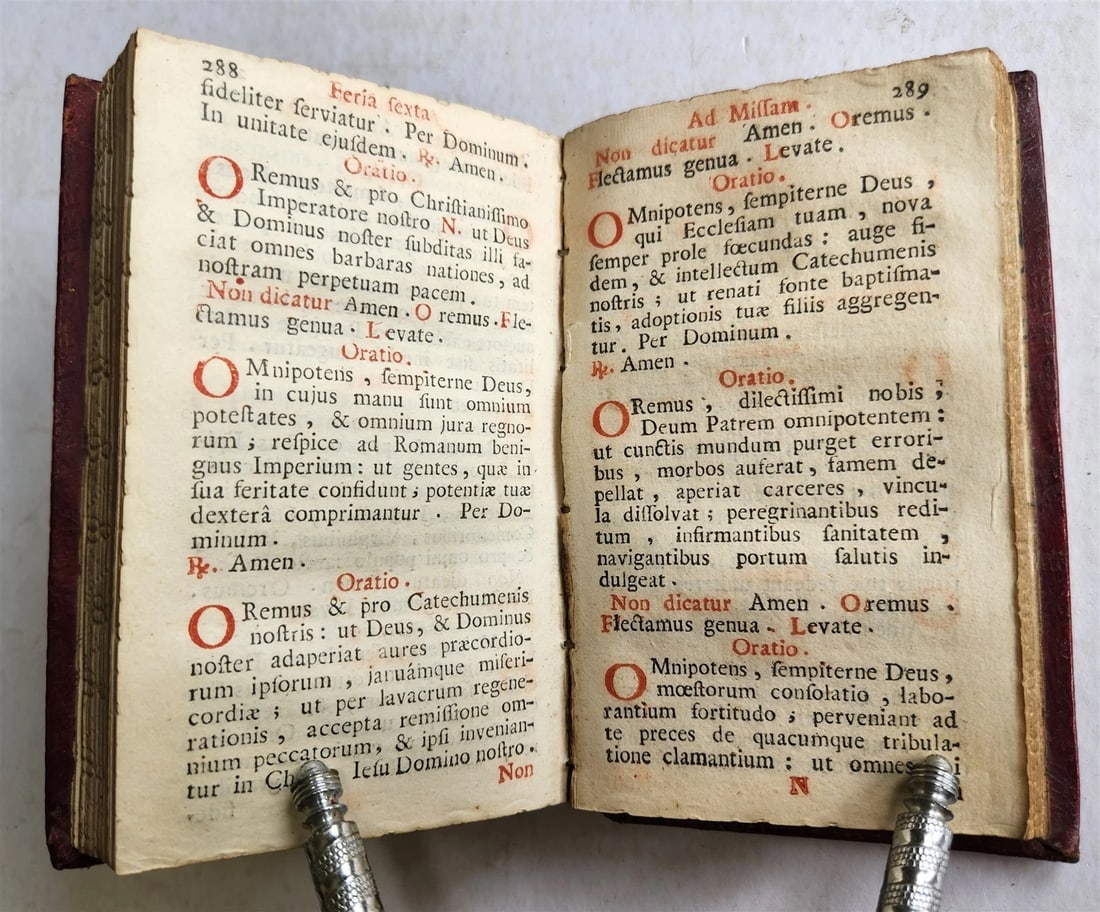 288
Feria ſexta
fideliter ſerviatur. Per Dominum.
In unitate ejuſdem. ℟. Amen.
Oratio.
ORemus & pro Chriſtianiſſimo
Imperatore noſtro N. ut Deus
& Dominus noſter ſubditas illi fa-
ciat omnes barbaras nationes, ad
noſtram perpetuam pacem.
Non dicatur Amen. Oremus. Fle-
ctamus genua. Levate.
Oratio.
OMnipotens, ſempiterne Deus,
in cujus manu ſunt omnium
poteſtates, & omnium jura regno-
rum; reſpice ad Romanum beni-
gnus Imperium: ut gentes, quæ in
ſua feritate confidunt; potentiæ tuæ
dexterâ comprimantur. Per Do-
minum.
℟. Amen.
Oratio.
ORemus & pro Catechumenis
noſtris: ut Deus, & Dominus
noſter adaperiat aures præcordio-
rum ipſorum, januámque miſeri-
cordiæ; ut per lavacrum regene-
rationis, accepta remiſſione om-
nium peccatorum, & ipſi invenian-
tur in Ieſu Domino noſtro.
Non
289
Ad Miſſam.
Non dicatur Amen. Oremus.
Flectamus genua. Levate.
Oratio.
OMnipotens, ſempiterne Deus,
qui Eccleſiam tuam, nova
ſemper prole fœcundas: auge fi-
dem, & intellectum Catechumenis
noſtris; ut renati fonte baptiſma-
tis, adoptionis tuæ filiis aggregen-
tur. Per Dominum.
℟. Amen.
Oratio.
ORemus, dilectiſſimi nobis;
Deum Patrem omnipotentem:
ut cunctis mundum purget errori-
bus, morbos auferat, famem de-
pellat, aperiat carceres, vincu-
la diſſolvat; peregrinantibus redi-
tum, infirmantibus ſanitatem,
navigantibus portum ſalutis in-
dulgeat.
Non dicatur Amen. Oremus.
Flectamus genua. Levate.
Oratio.
OMnipotens, ſempiterne Deus,
mœſtorum conſolatio, labo-
rantium fortitudo; perveniant ad
te preces de quacumque tribula-
tione clamantium: ut omnes
N